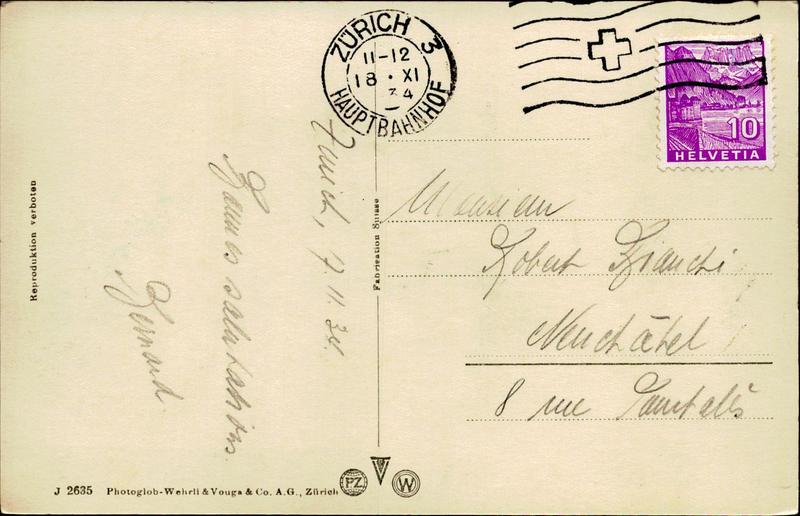 ZÜRICH 3
11-12
18 · XI
34
HAUPTBAHNHOF
10
HELVETIA
Zurich, 17.11.34.
Bonnes salutations.
Bernard
Monsieur
Robert Bianchi
Neuchâtel
8 rue Pourtalès
Reproduktion verboten
Fabrication Suisse
J 2635 Photoglob-Wehrli & Vouga & Co. A.G., Zürich
PZ
W